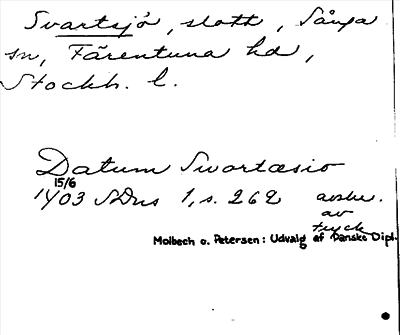 Svartsjö, slott, Sånga
sn, Färentuna hd,
Stockh. l.
Datum Swartæsio
15/6
1403 SDns 1, s. 262 avskr.
av
tryck
Molbech o. Petersen: Udvalg af Danske Dipl.